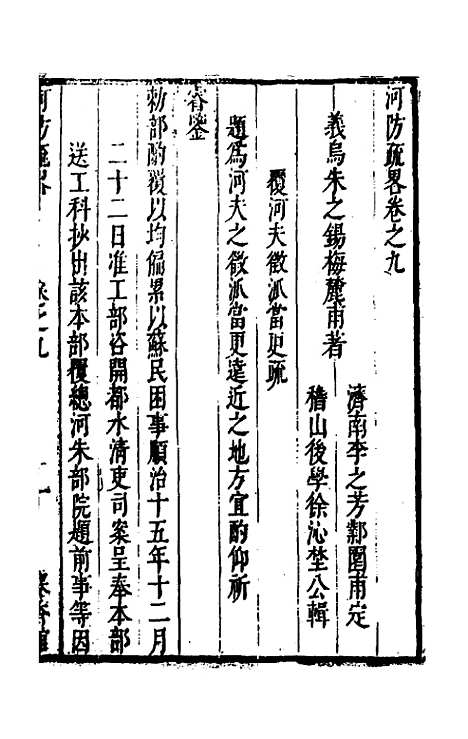 河防疏畧卷之九
濟南李之芳鄴園甫定
義烏朱之錫梅麓甫著
稽山後學徐沁埜公輯
覆河夫徵派當更疏
題為河夫之徵派當更遠近之地方宜酌仰祈
睿鑒
勅部酌覆以均偏累以蘇民困事順治十五年十二月
二十二日准工部咨開都水清吏司案呈奉本部
送工科抄出該本部覆總河朱部院題前事等因
河防疏畧
卷之九
一